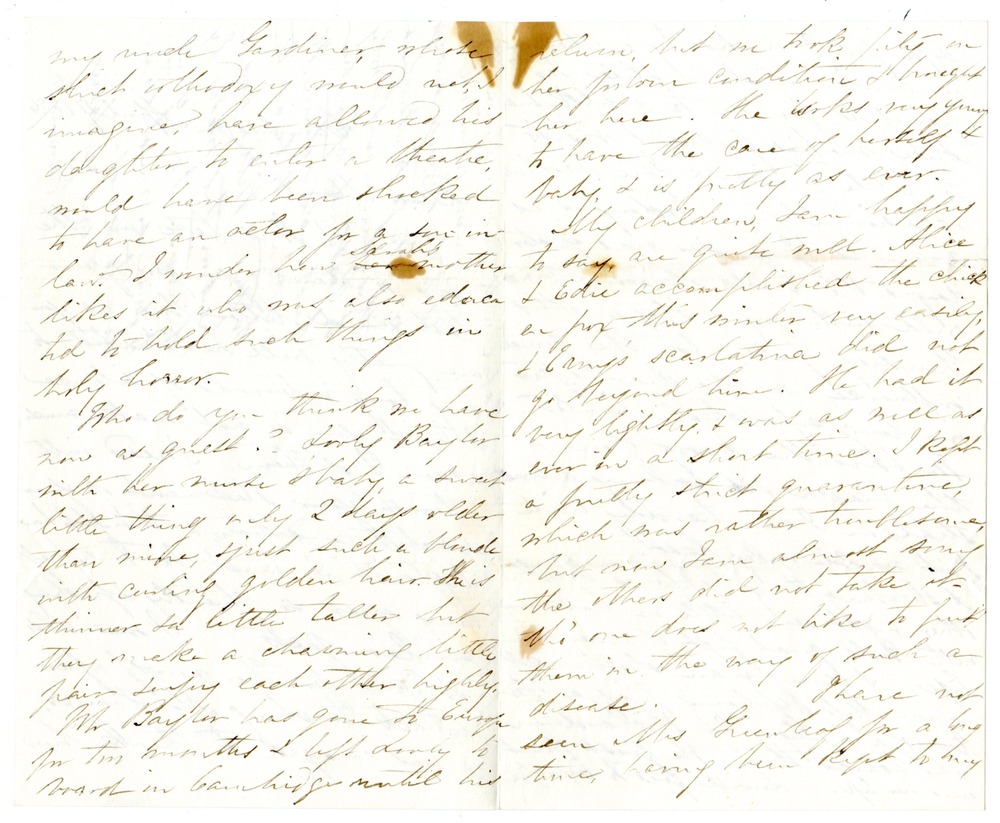 my uncle Gardiner, whose
strict orthodoxy would not, I
imagine, have allowed his
daughter to enter a theatre,
would have been shocked
to have an actor for a son in
law. I wonder how Sarah's mother
likes it who was also educa
ted to hold such things in
holy horror.
Who do you think we have
now as guest? Lovly Baylor
with her nurse & baby, a sweet
little thing only 2 days older
than mine, & just such a blonde
with curling golden hair. She is
thinner & a little taller but
they make a charming little
pair & enjoy each other highly.
Mr Baylor has gone to Europe
for two months & left to
board in Cambridge until his
return, but we took pity on
her forlorn condition & brought
her here. She looks very young
to have the care of herself &
baby, & is pretty as ever.
My children, I am happy
to say, are quite well. Alice
& Edie accomplished the chick
en pox this winter very easily,
& Erny's scarlatina did not
go beyond him. He had it
very lightly & was as well as
ever in a short time. I kept
a pretty strict quarantine,
which was rather troublesome,
but now I am almost sorry
the others did not take it
tho' one does not like to put
them in the way of such a
disease. I have not
seen Mrs Greenleaf for a long
time, having been kept to my